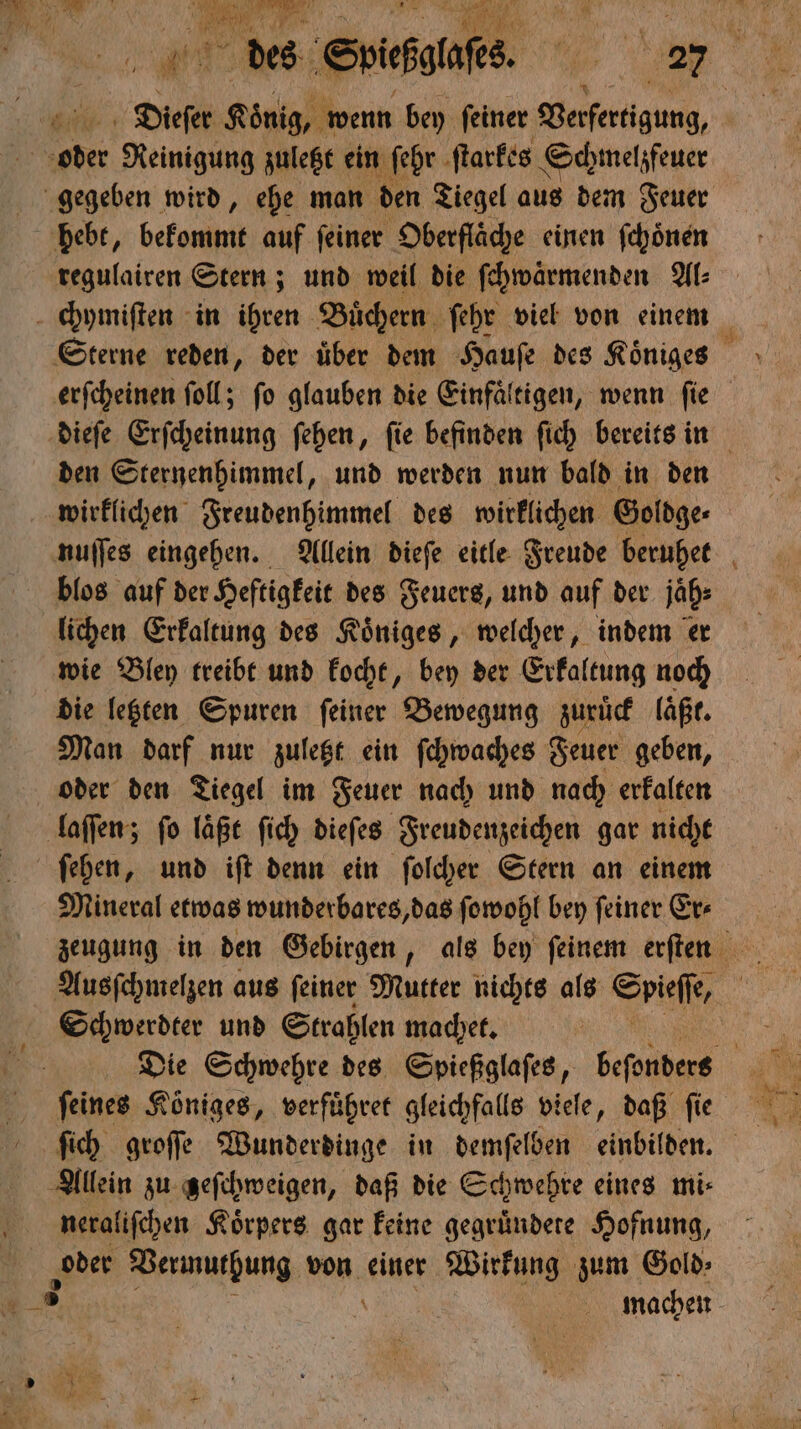 des Spießglaſes. 27
Dieſer Koͤnig, wenn bey ſeiner Verfertigung,
oder Reinigung zuletzt ein ſehr ſtarkes Schmelzfeuer
gegeben wird, ehe man den Tiegel aus dem Feuer
hebt, bekommt auf ſeiner Oberflaͤche einen ſchoͤnen
regulairen Stern; und weil die ſchwaͤrmenden Al⸗
chymiſten in ihren Buͤchern ſehr viel von einem
Sterne reden, der uͤber dem Hauſe des Koͤniges
erſcheinen ſoll; ſo glauben die Einfaͤltigen, wenn ſie
dieſe Erſcheinung ſehen, ſie befinden ſich bereits in
den Sternenhimmel, und werden nun bald in den
wirklichen Freudenhimmel des wirklichen Goldge⸗
nuſſes eingehen. Allein dieſe eitle Freude beruhet
blos auf der Heftigkeit des Feuers, und auf der jaͤh⸗
lichen Erkaltung des Koͤniges, welcher, indem er
wie Bley treibt und kocht, bey der Erkaltung noch
die letzten Spuren ſeiner Bewegung zuruͤck laͤßt.
Man darf nur zuletzt ein ſchwaches Feuer geben,
oder den Tiegel im Feuer nach und nach erkalten
laſſen; ſo laͤßt ſich dieſes Freudenzeichen gar nicht
ſehen, und iſt denn ein ſolcher Stern an einem
Mineral etwas wunderbares, das ſowohl bey ſeiner Er⸗
zeugung in den Gebirgen, als bey ſeinem erſten
Ausſchmelzen aus ſeiner Mutter nichts als Spieſſe,
Schwerdter und Strahlen machet.
Die Schwehre des Spießglaſes, beſonders
ſeines Koͤniges, verfuͤhret gleichfalls viele, daß ſie
ſich groſſe Wunderdinge in demſelben einbilden.
Allein zu geſchweigen, daß die Schwehre eines mi⸗
neraliſchen Koͤrpers gar keine gegruͤndete Hofnung,
oder Vermuthung von einer Wirkung zum Gold⸗
machen